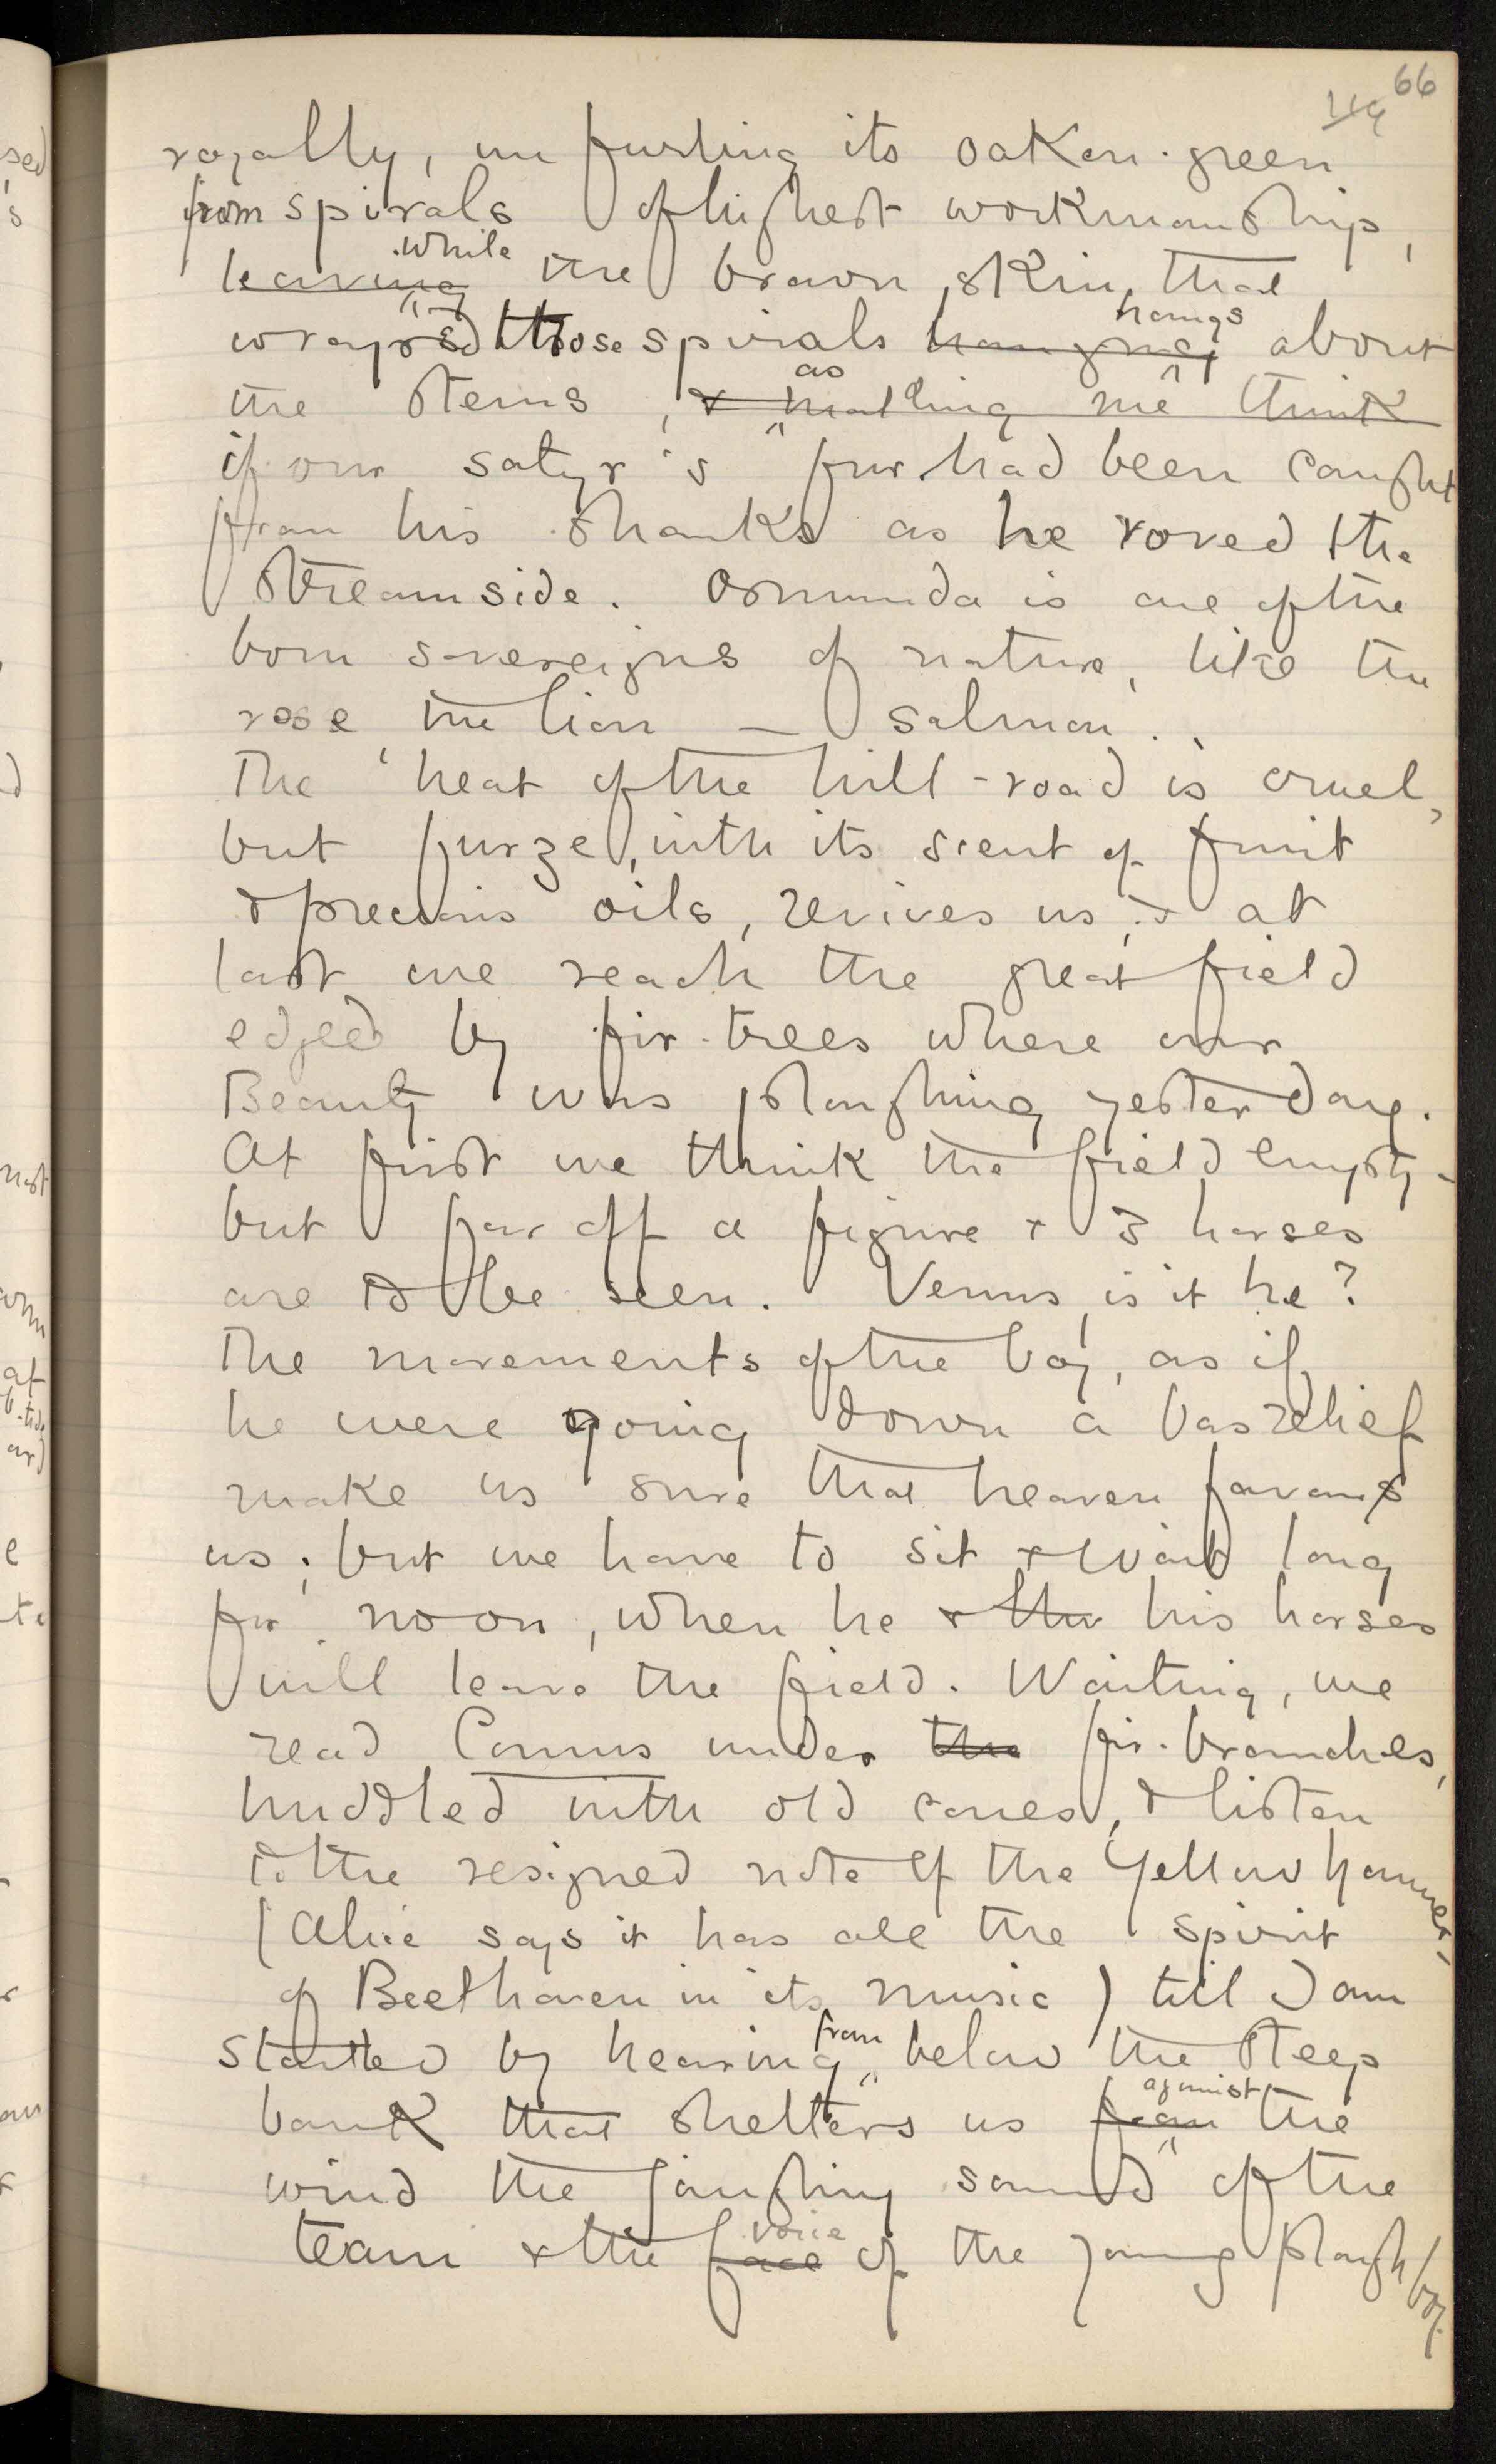 66
119
royally, unfurling its oaken-green
from spirals of highest workmanship,
leaving while the brown skin, that
wrapped those spirals hanging hangs about
the stems, & making me think as
if our satyr's fur had been caught
from his shanks as he roved the
streamside. Osmunda is one of the
born sovereigns of nature, like the
rose, the lion — salmon..
The heat of the hill-road is cruel,
but furze, with its scent of fruit
& precious oils, revives us, & at
last we reach the great field
edged by fir-trees where our
Beauty was ploughing yesterday.
At first we think the field empty -
but far off a figure & 3 horses
are to be seen. Venus, is it he?
The movements of the boy, as if
he were going down a basrelief
make us sure that heaven favours
us; but we have to sit & wait long
for noon, when he & the his horses
will leave the field. Waiting, we
read Comus under the fir-branches,
huddled with old cones, & listen
to the resigned note of the Yellow hammer,
(Alice says it has all the spirit
of Beethoven in its music) till I am
started by hearing from below the steep
bank that shelters us from against the
wind the sound of the
team & the face voice of the young plough/boy.